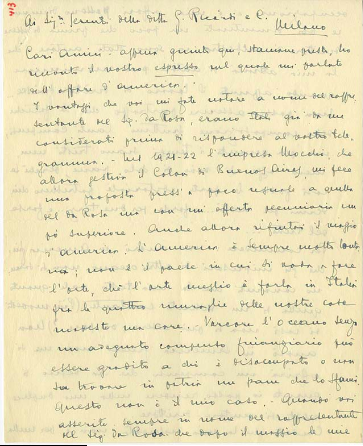 413
Ai Sig.ri Gerenti della ditta G. Ricordi e C.
Milano
Cari Amici - appena giunto qui, stamane presto, ho
ricevuto il vostro espresso nel quale mi parlate
dell'affare d'America.
I vantaggi che voi mi fate notare a nome del rappre
sentante del Sig. da Rosa, erano stati già da me
considerati prima di rispondere al vostro tele
gramma. - Nel 1921-22 l'impresa Mocchi, che
allora gestiva il Colon di Buenos Aires, mi fece
una proposta press'a poco uguale a quella
del da Rosa ma con un'offerta pecuniaria un
po' superiore. Anche allora rifiutai il viaggio
in America. L'America è sempre molto lonta
na; non è il paese in cui si vada a fare
l'arte, chè l'arte meglio è farla in Italia
fra le quattro muraglie delle nostre case
modeste ma care. Varcare l'Oceano senza
un adeguato compenso finanziario può
essere gradito a chi è disoccupato o non
sa trovare in patria un pane che lo sfami
Questo non è il mio caso. Quando voi
asserite sempre in nome del rappresentante
del Sig. da Rosa che dopo il viaggio le mie